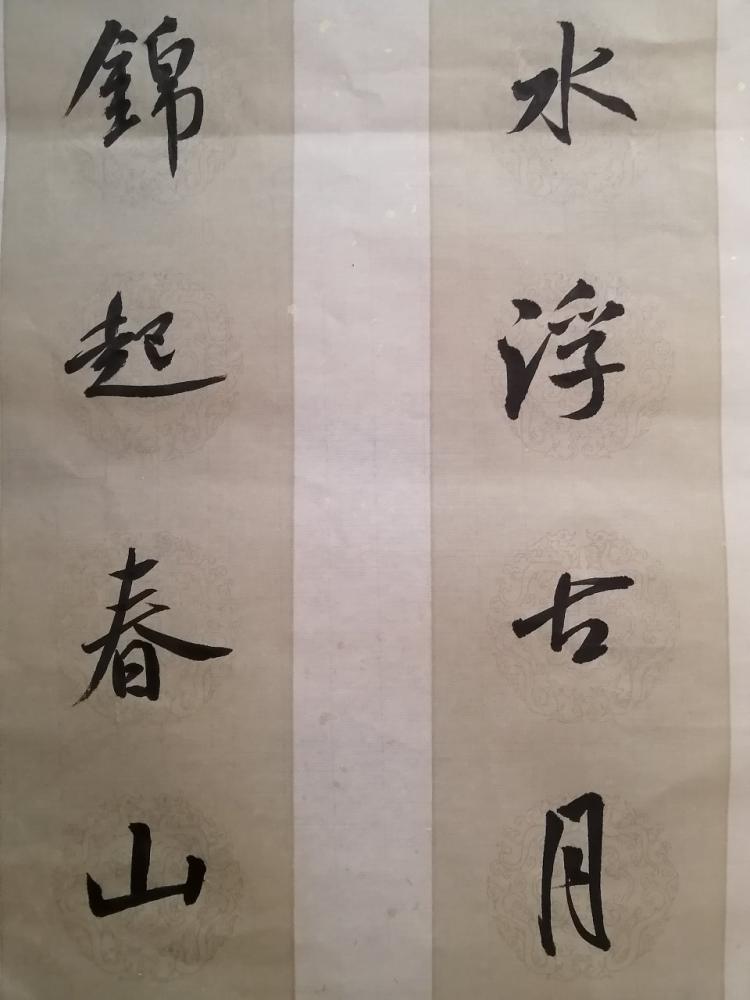 水浮古月
錦起春山